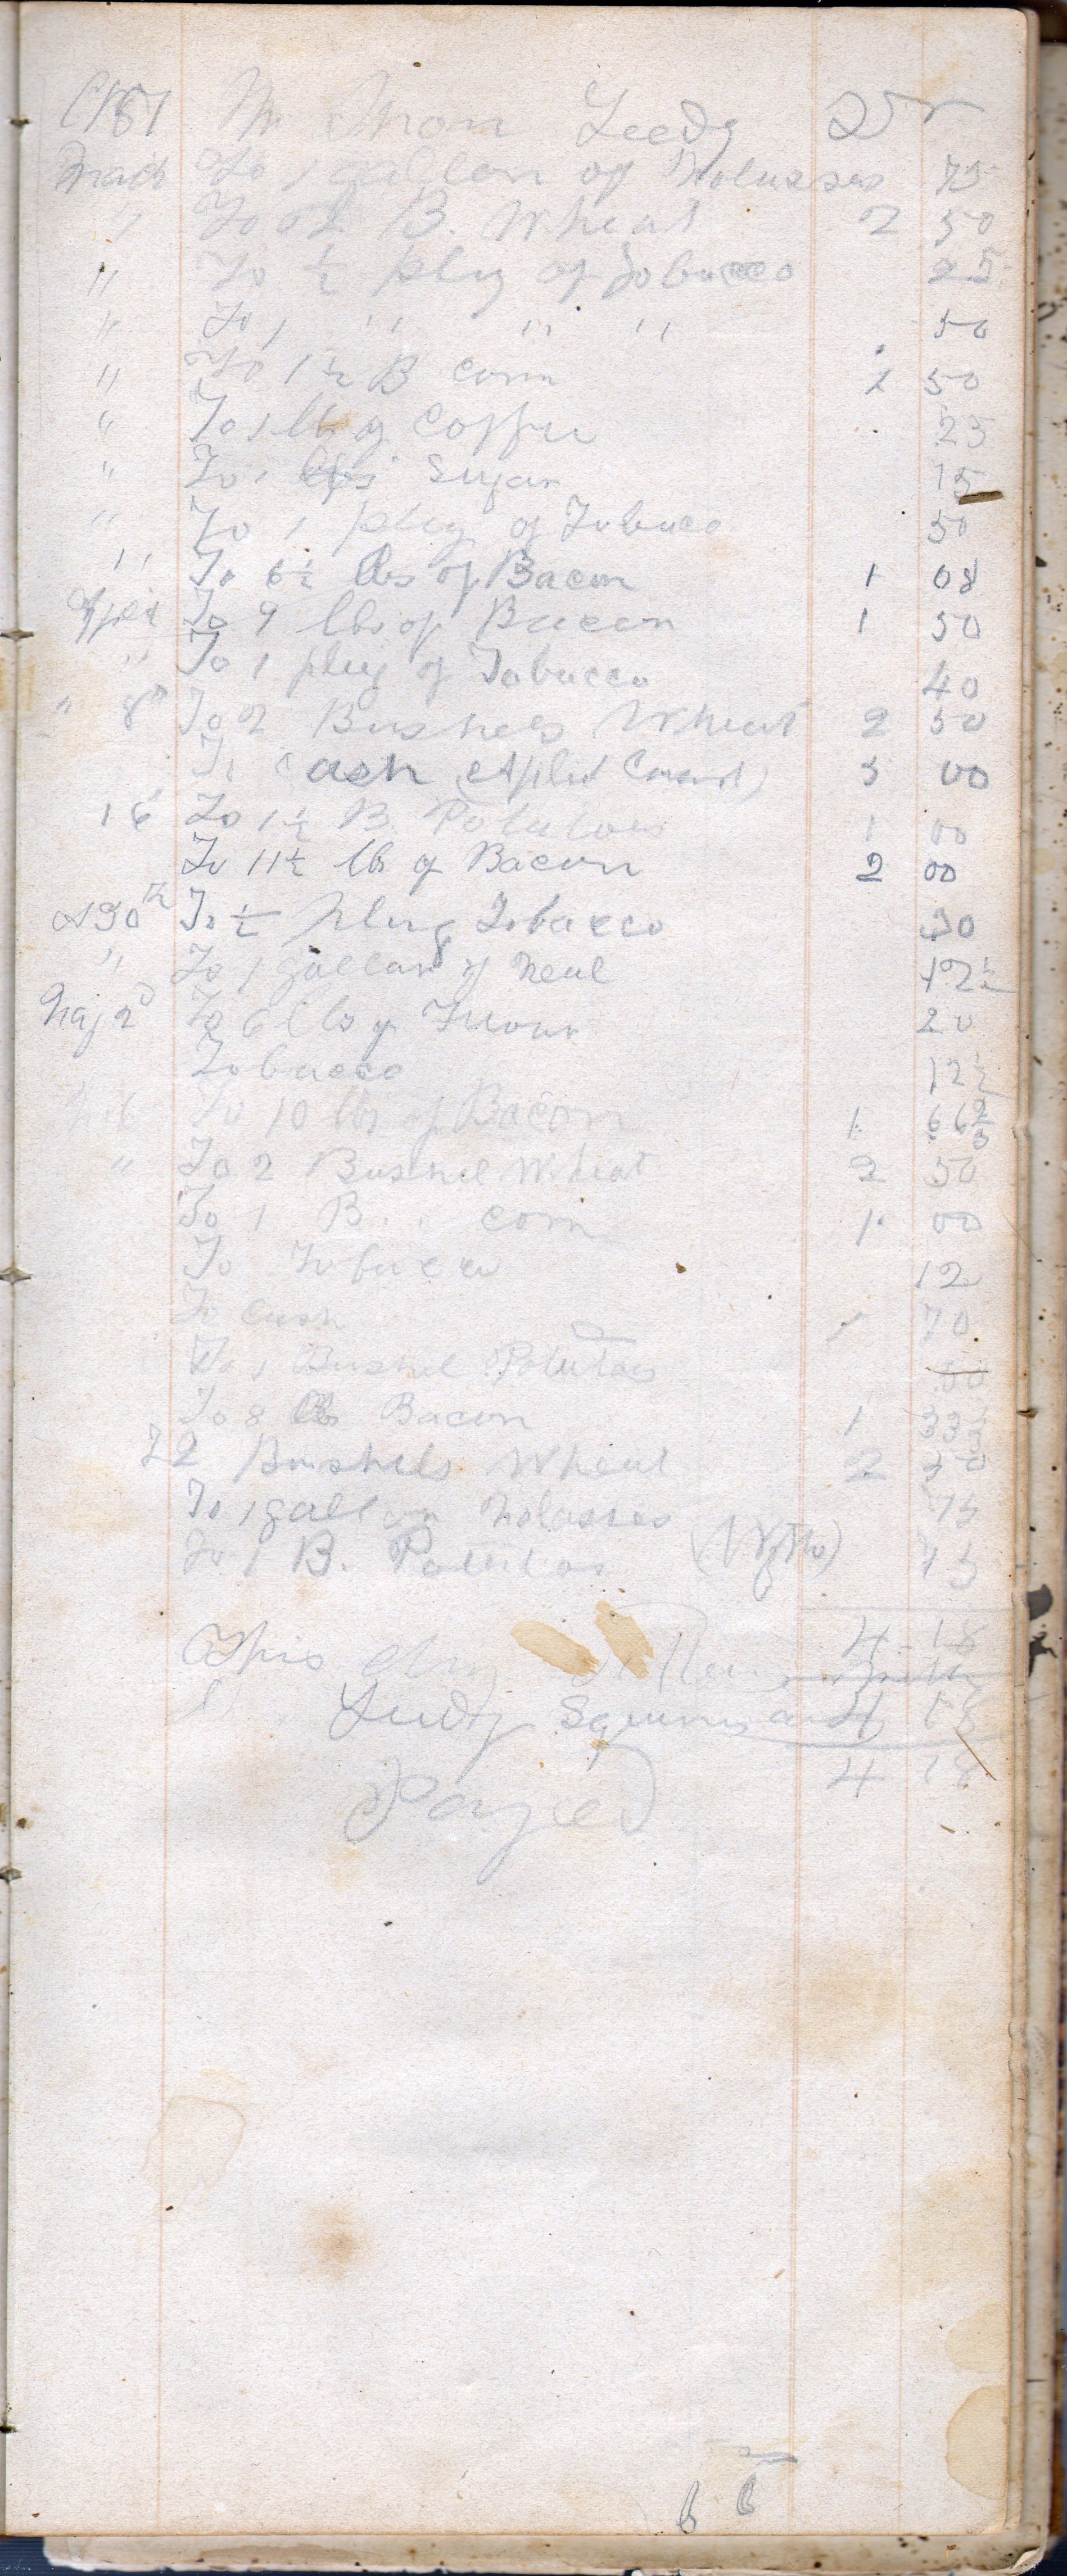 Mr Leedy Dr
March To 1 gallon of Molusses 75
" To 2 B. Wheat 2 50
" To ½ plug of Tobacco 25
" To 1 " " " 50
" To 1½ B corn 1 50
" To 1 lb of Coffee 25
" To 1 lbs Sugar 15
" To 1 plug of Tobacco 50
" To 6½ lbs of Bacon 1 08
April To 9 lbs of Bacon 1 50
" To 1 plug of Tobacco 40
" 8th To 2 Bushels Wheat 2 50
To Cash 5 00
16 To 1½ B. Potatoes 1 00
To 11½ lbs of Bacon 2 00
30th To ½ plug Tobacco 30
" To 1 gallan of Meal 12½
May 2d To 6 lbs of Flour 20
Tobacco 12½
To 10 lbs of Bacon 1 66⅔
" To 2 Bushel Wheat 2 50
To 1 B. corn 1 00
To Tobacco 12
To cash 1 70
To 1 Bushel Potatoes
To 8 lbs Bacon 1 33⅓
2 Bushels Wheat 2 50
To 1 gallon Molasses 75
To 1 B. Potatoes 75
4 18
This day
Leedy 4 18
4 18
Payed
6 6